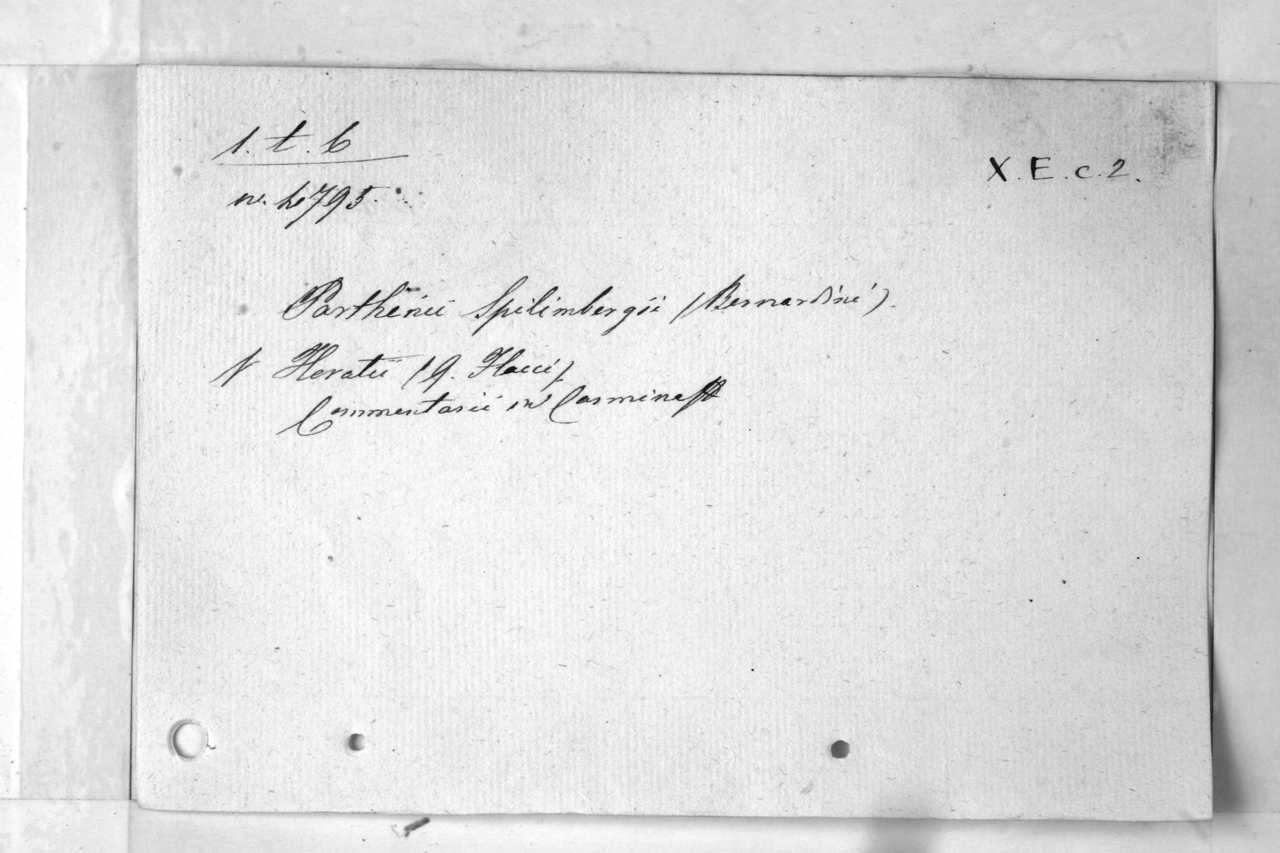 1. t. 6
X. E. c. 2.
Parthenii Spilimbergii (Bernardini).
N Horatii (Q. Flacci)
Commentarii in Carmina